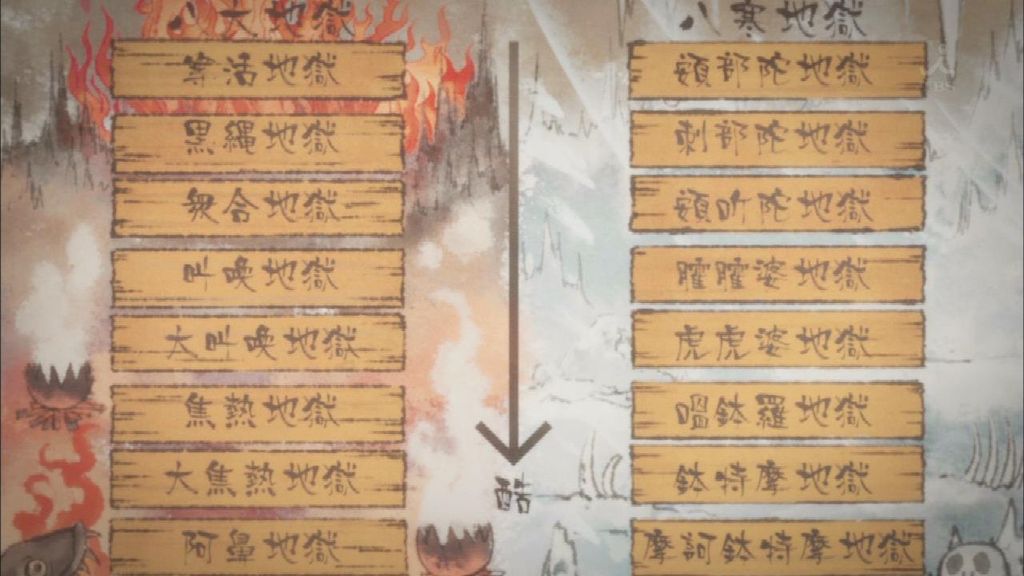 八大地獄
等活地獄
黒縄地獄
衆合地獄
叫喚地獄
大叫喚地獄
焦熱地獄
大焦熱地獄
阿鼻地獄
酷
八寒地獄
頞部陀地獄
刺部陀地獄
頞听陀地獄
臛臛婆地獄
虎虎婆地獄
嗢鉢羅地獄
鉢特摩地獄
摩訶鉢特摩地獄